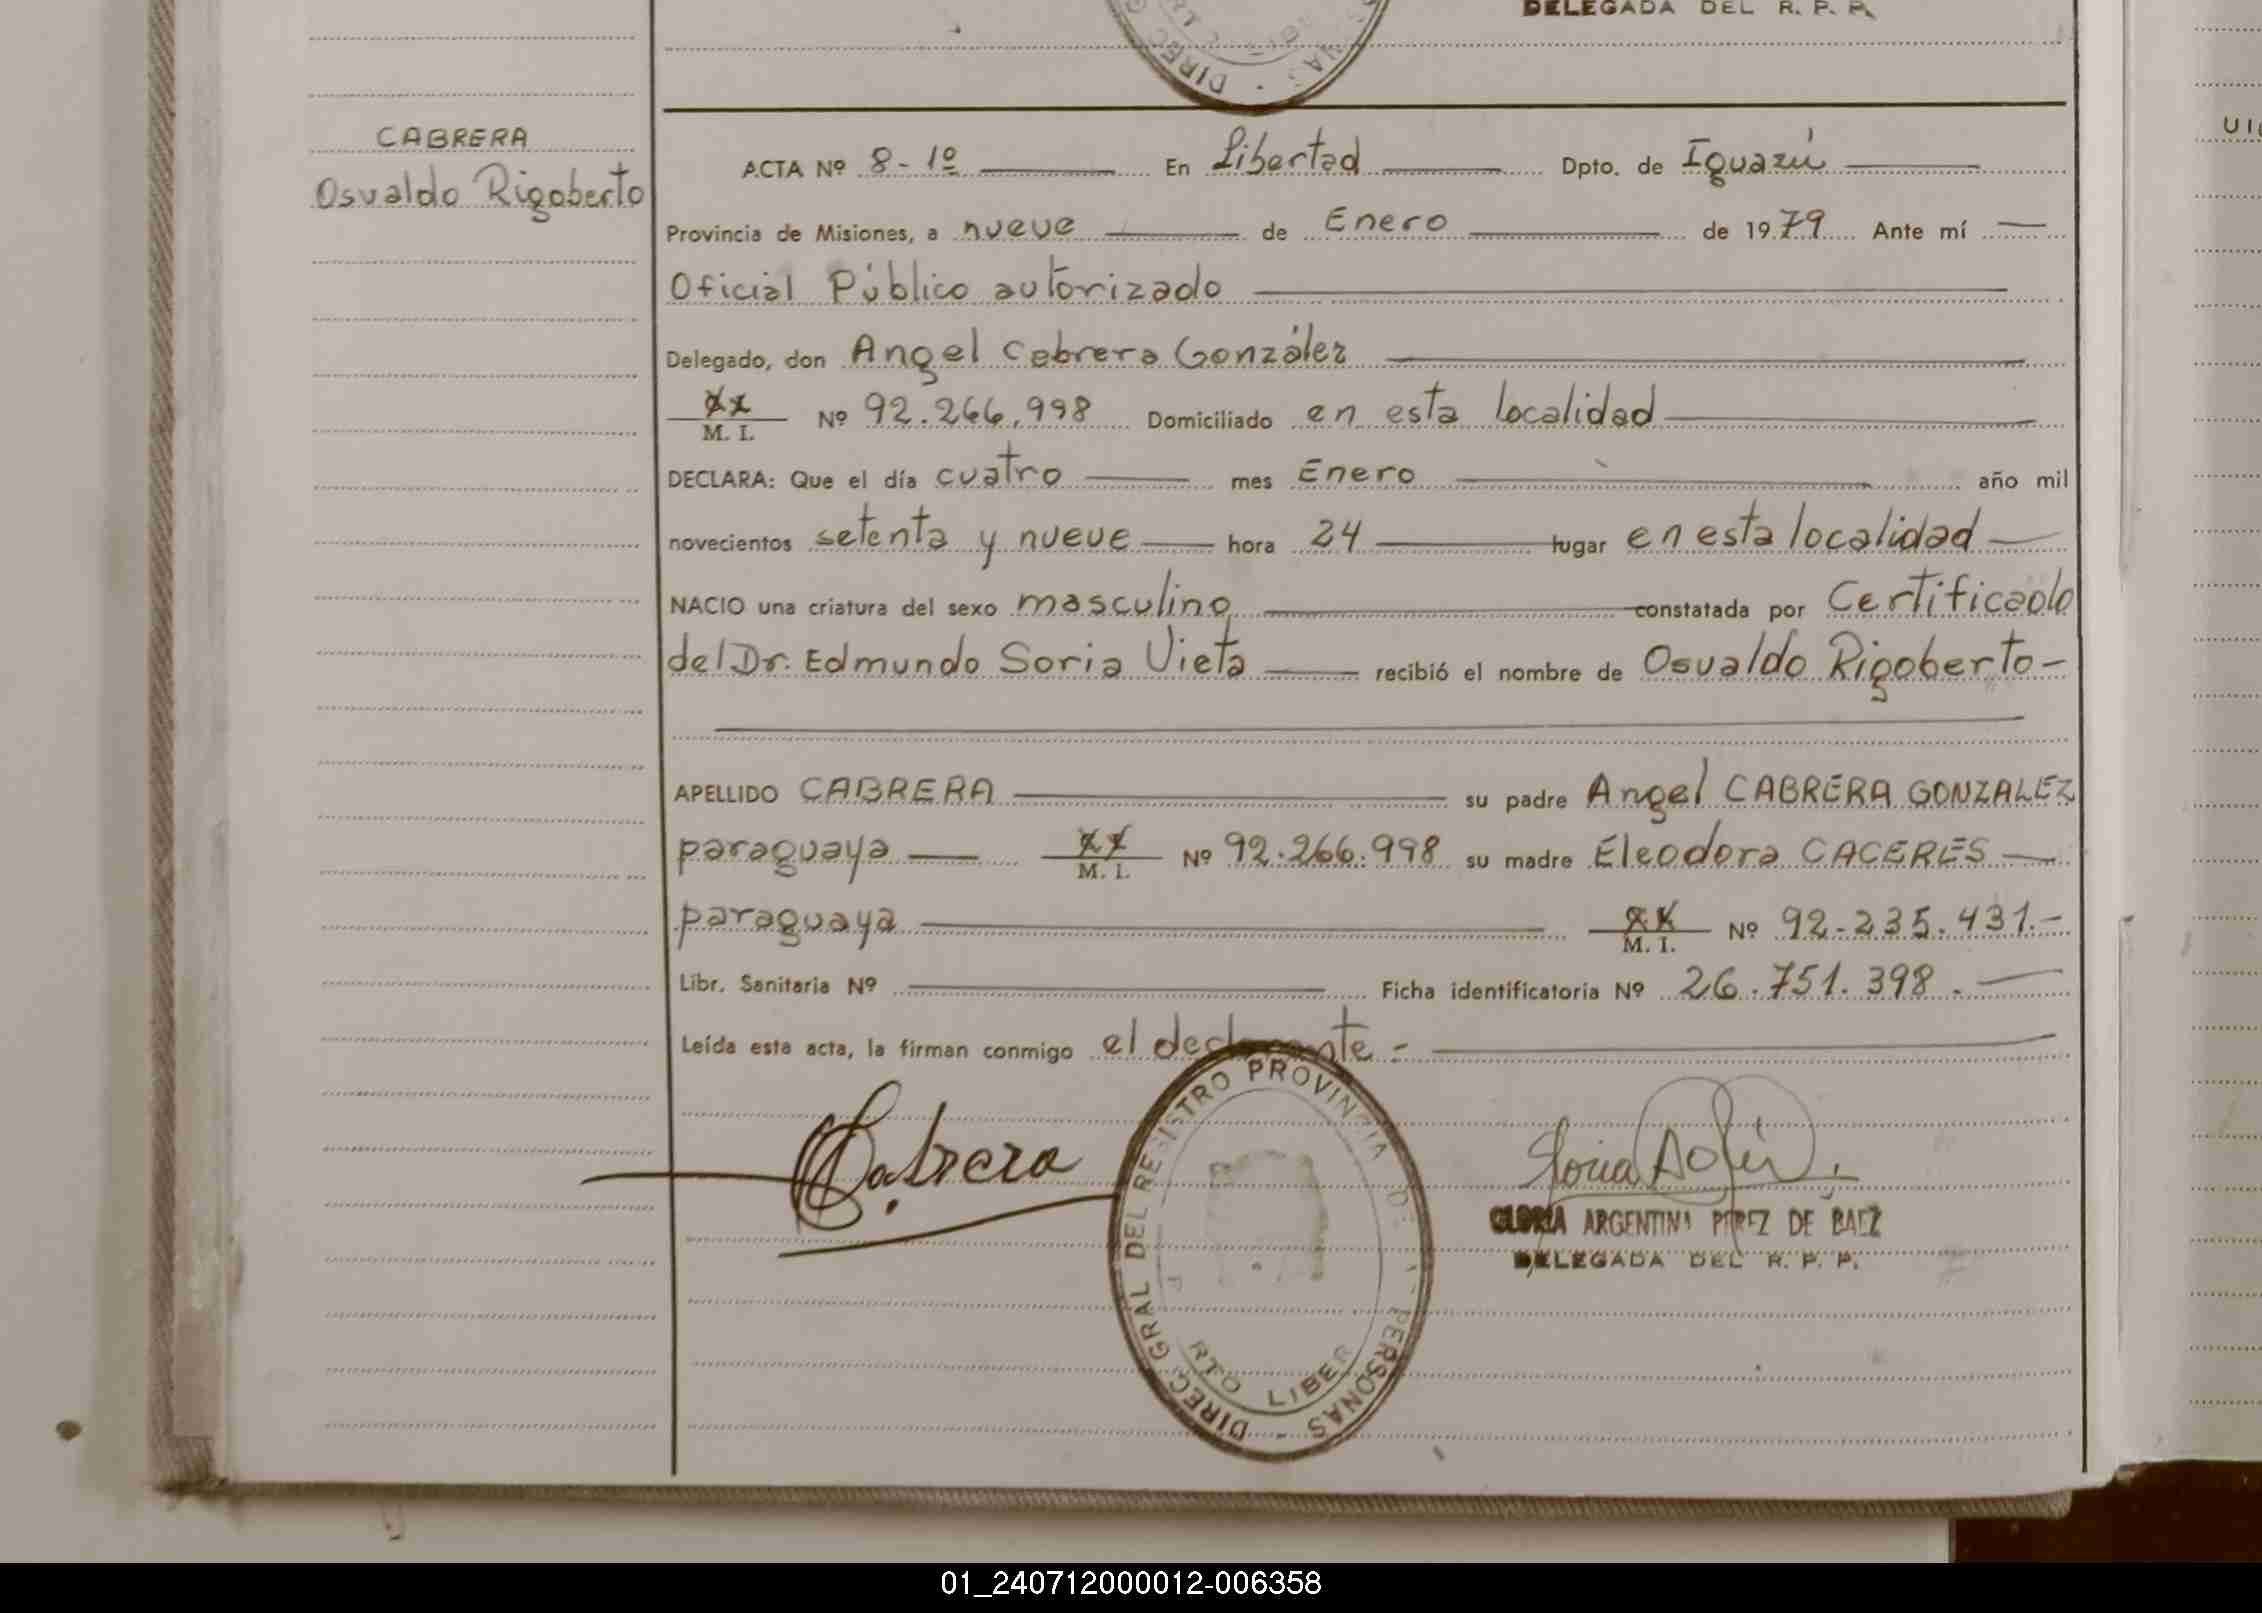 DELEGADA DEL R. P. P.
CABRERA
Osvaldo Rigoberto
ACTA Nº 8-1º En Libertad Dpto. de Iguazú
Provincia de Misiones, a nueve de Enero de 1979 Ante mí
Oficial Público autorizado
Delegado, don Angel Cabrera González
xx M. I. Nº 92.266.998 Domiciliado en esta localidad
DECLARA: Que el día cuatro mes Enero año mil
novecientos setenta y nueve hora 24 lugar en esta localidad
NACIO una criatura del sexo masculino constatada por Certificado
del Dr. Edmundo Soria Vieta recibió el nombre de Osvaldo Rigoberto-
APELLIDO CABRERA su padre Angel CABRERA GONZALEZ
paraguaya xx M. I. Nº 92.266.998 su madre Eleodora CACERES
paraguaya xx M. I. Nº 92-235.431.-
Libr. Sanitaria Nº Ficha identificatoria Nº 26.751.398.
Leída esta acta, la firman conmigo el declarante -
Cabrera
DIREC. GRAL DEL REGISTRO PROVINCIAL DE PERSONAS -
RTO LIBER
GLORIA ARGENTINA PEREZ DE BAEZ
DELEGADA DEL R. P. P.
01_240712000012-006358